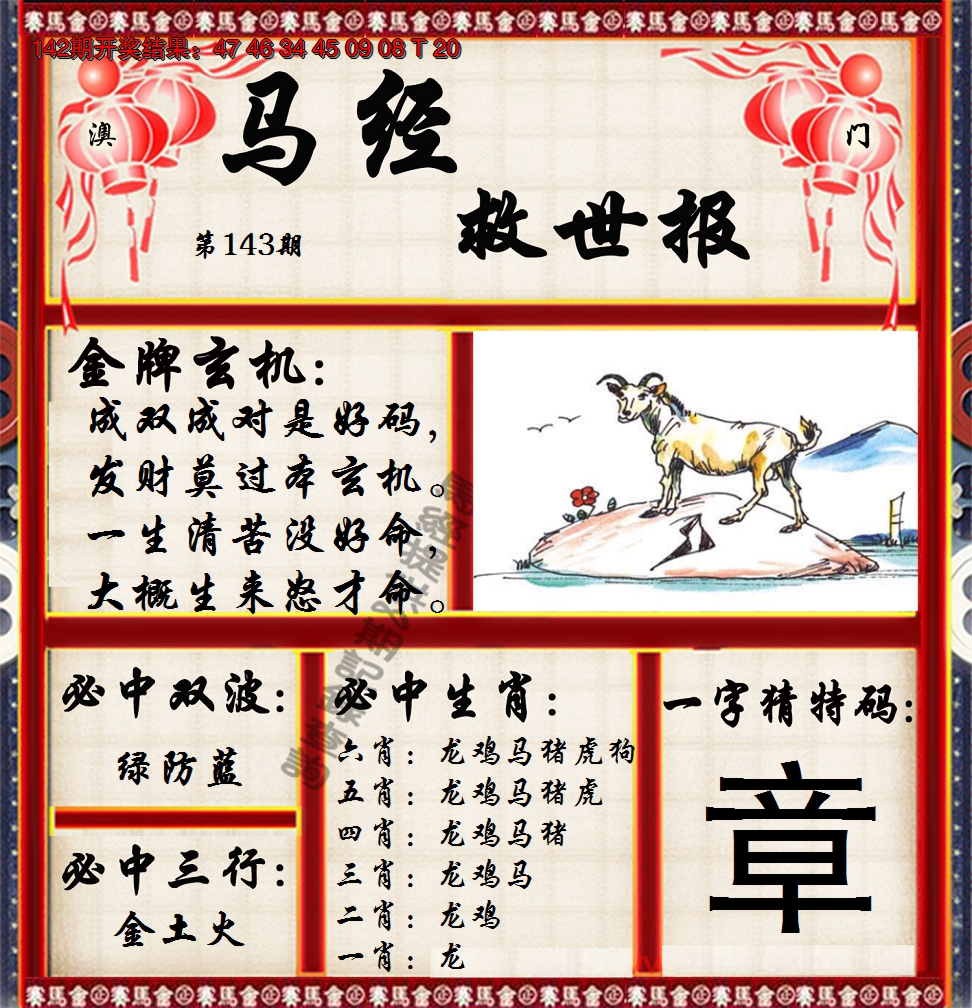 142期开奖结果：47 46 34 45 09 08 T 20
澳
门
马经
救世报
第143期
金牌玄机：
成双成对是好码，
发财莫过本玄机。
一生清苦没好命，
大概生来怨才命。
必中双波：
绿防蓝
必中三行：
金土火
必中生肖：
六肖：龙鸡马猪虎狗
五肖：龙鸡马猪虎
四肖：龙鸡马猪
三肖：龙鸡马
二肖：龙鸡
一肖：龙
一字猜特码：
章